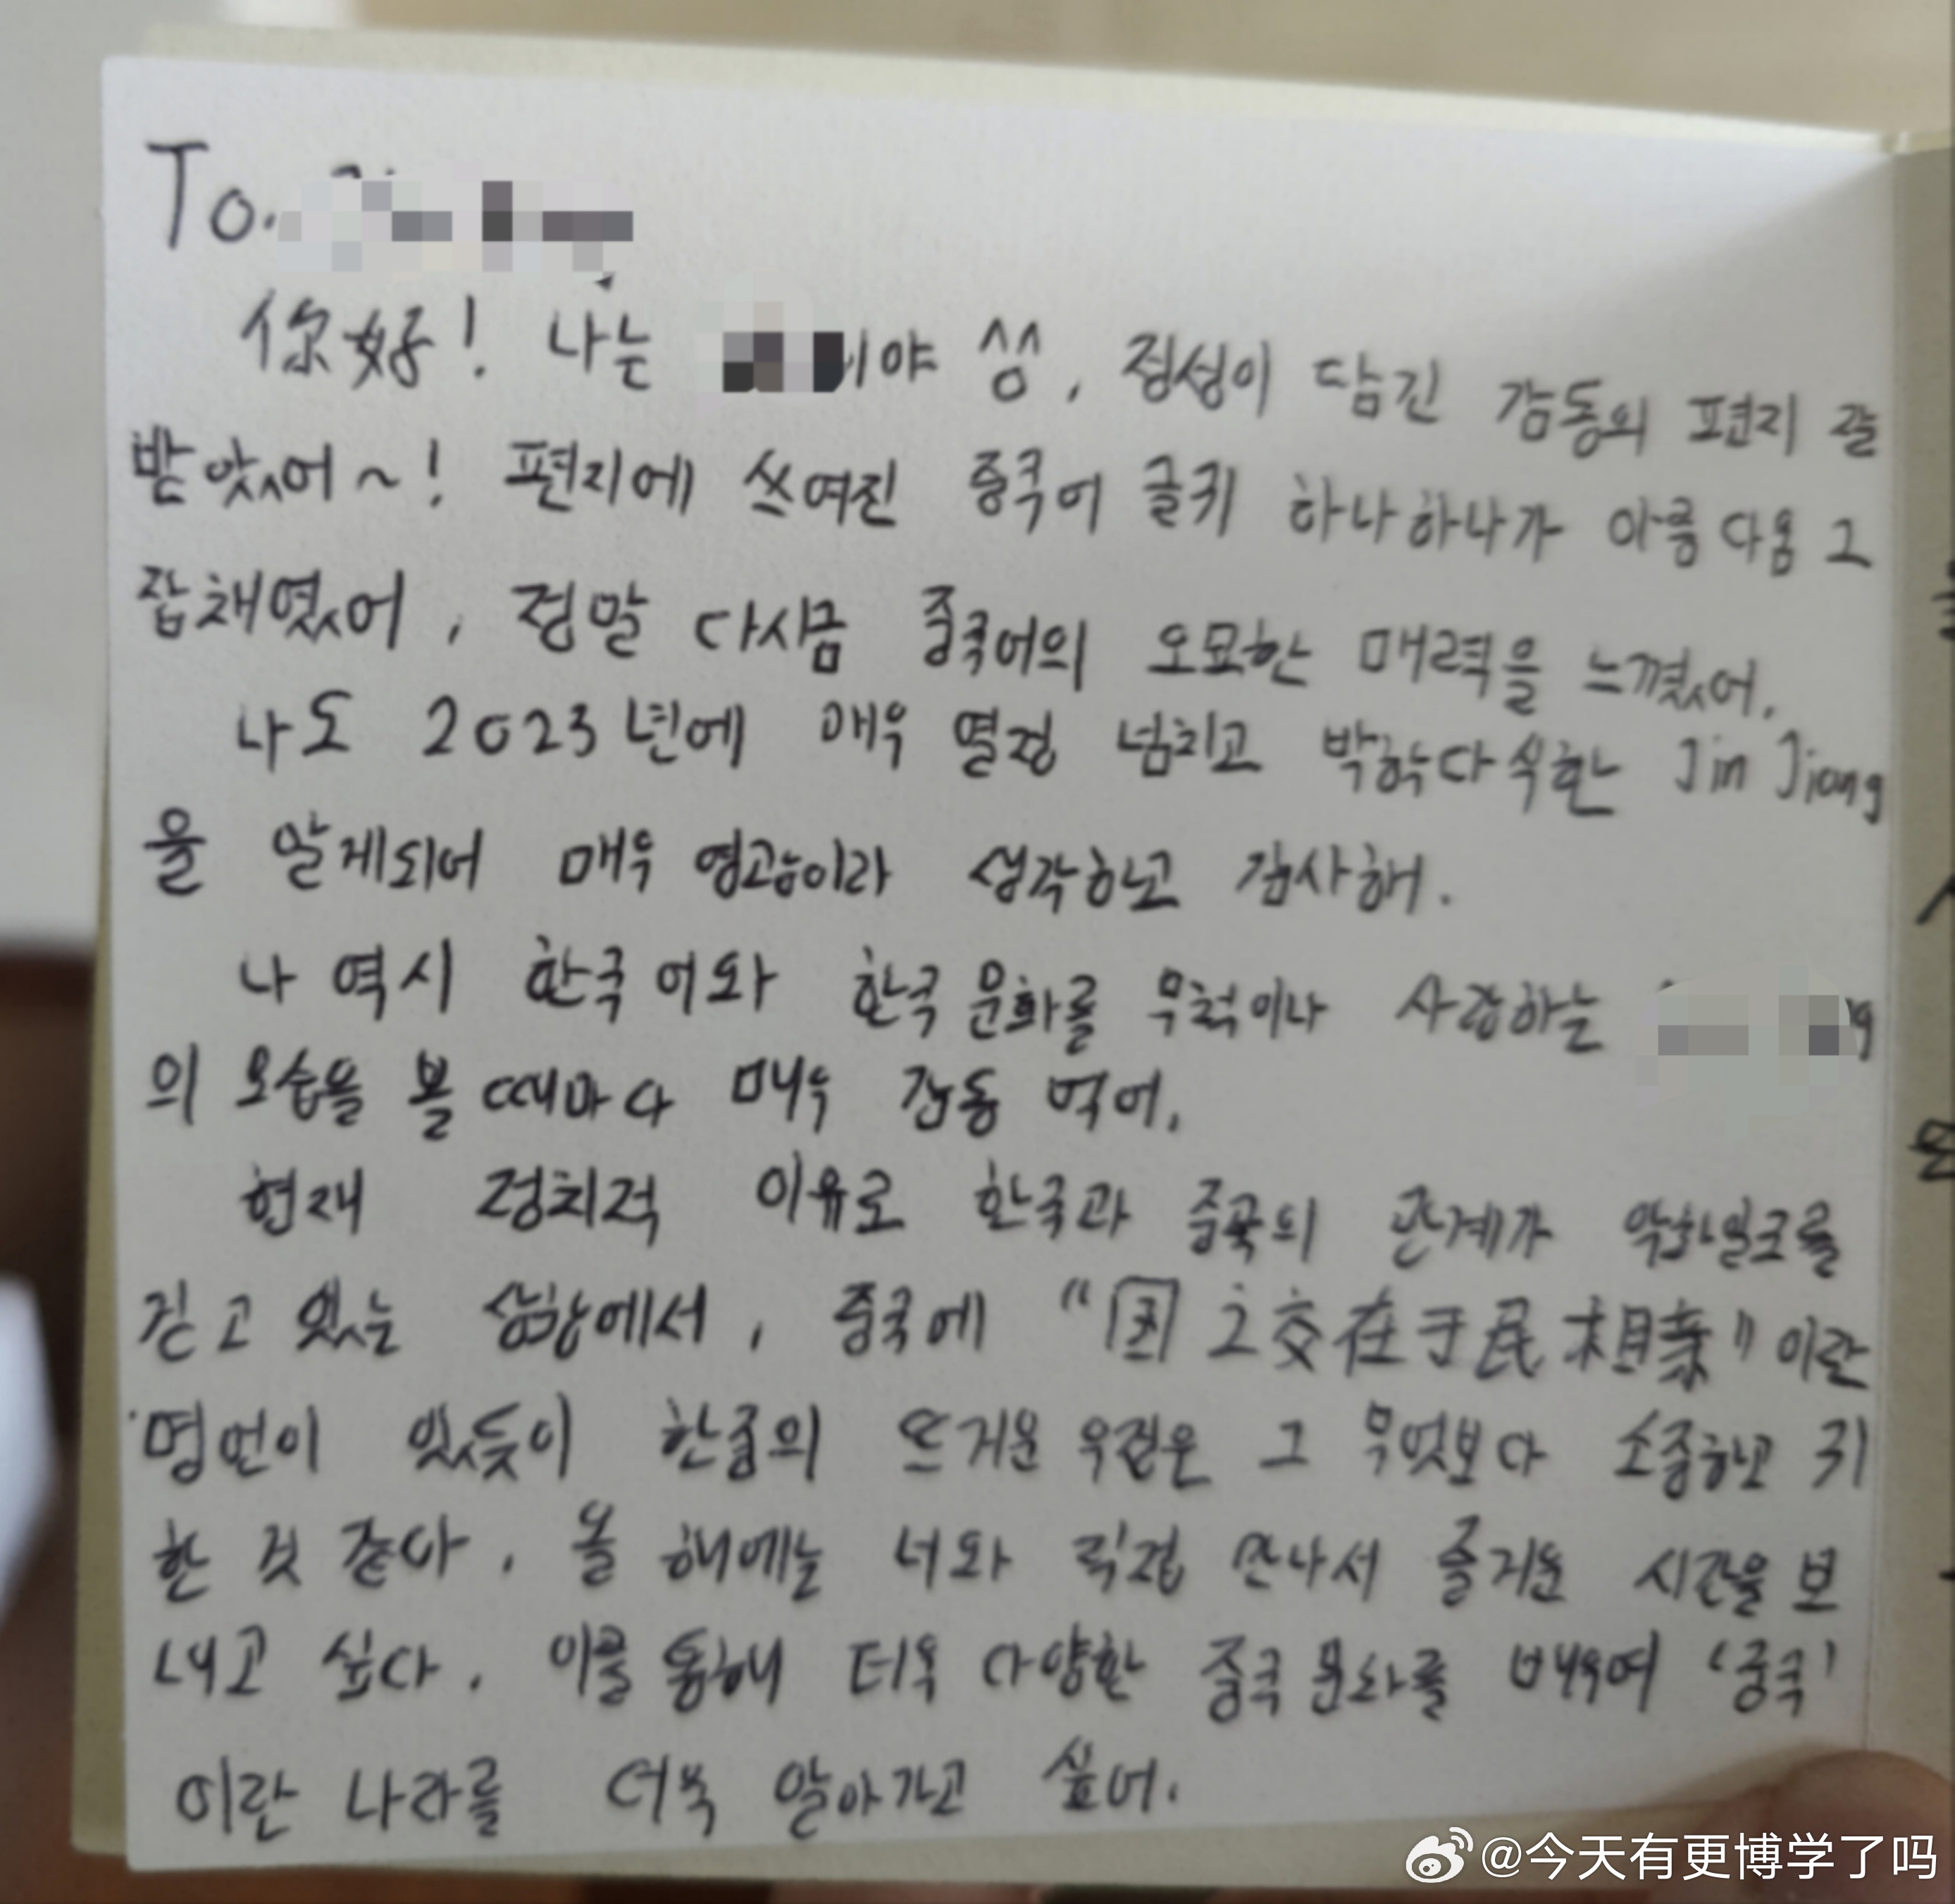 To.
你好! 나는 이야 ^^, 정성이 담긴 감동의 편지 잘
받았어~! 편지에 쓰여진 중국어 글귀 하나하나가 아름다움 그
잡채였어, 정말 다시금 중국어의 오묘한 매력을 느꼈어.
나도 2023년에 매우 열정 넘치고 박학다식한 Jin Jiang
을 알게되어 매우 영광이라 생각하고 감사해.
나 역시 한국어와 한국문화를 무척이나 사랑하는
의 모습을 볼 때마다 매우 감동 먹어.
현재 정치적 이유로 한국과 중국의 관계가 악화일로를
걷고 있는 상황에서, 중국에 "国之交在于民相亲" 이란
명언이 있듯이 한중의 뜨거운 우정은 그 무엇보다 소중하고 귀
한 것 같아. 올 해에는 너와 직접 만나서 즐거운 시간을 보
내고 싶다. 이를 통해 더욱 다양한 중국문화를 배우며 '중국'
이란 나라를 더욱 알아가고 싶어.
@今天有更博学了吗